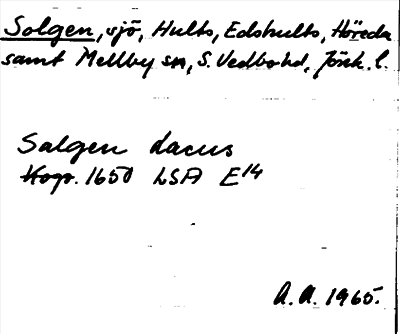 Solgen, sjö, Hults, Edshults, Höreda
samt Mellby sn, S. Vedbo hd, Jönk. l.
Salgen lacus
Kopr. 1650 LSA E 14
A. A. 1965.